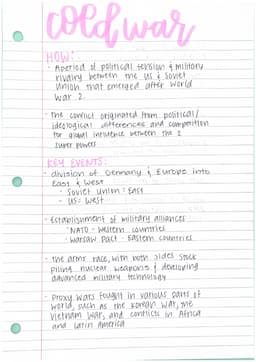 cold war
HOW:
· A period of political tension & military
rivalry between the US & Soviet
Union that emerged after World
War 2.
· The conflict originated from political/
ideological differences and competition
for global influence between the 2
super powers
KEY EVENTS:
· division of Germany & Europe into
East & West
· Soviet Union = East
· US = West
· Establishment of military alliances
· NATO - Western countries
· Warsaw Pact - Eastern countries
· The arms race, with both sides stock
piling nuclear weapons & developing
advanced military technology
· Proxy wars fought in various parts of
world, such as the Korean War, the
Vietnam War, and conflicts in Africa
and Latin America